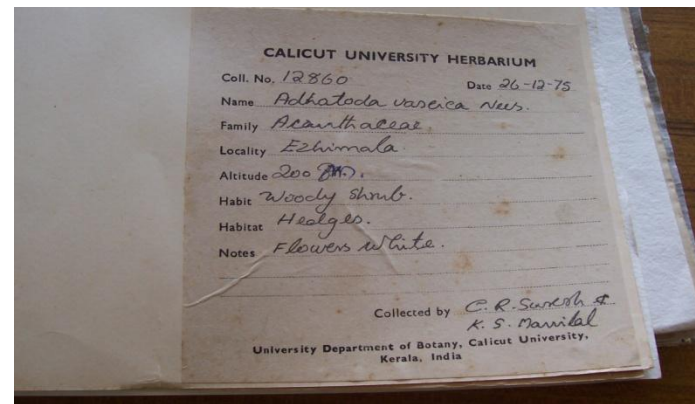 CALICUT UNIVERSITY HERBARIUM
Coll. No. 12860 Date 26-12-75
Name Adhatoda vasica Nees.
Family Acanthaceae.
Locality Ezhimala.
Altitude 200 m.
Habit Woody shrub.
Habitat Hedges.
Notes Flowers white.
Collected by C. R. Suresh &
K. S. Manilal
University Department of Botany, Calicut University,
Kerala, India